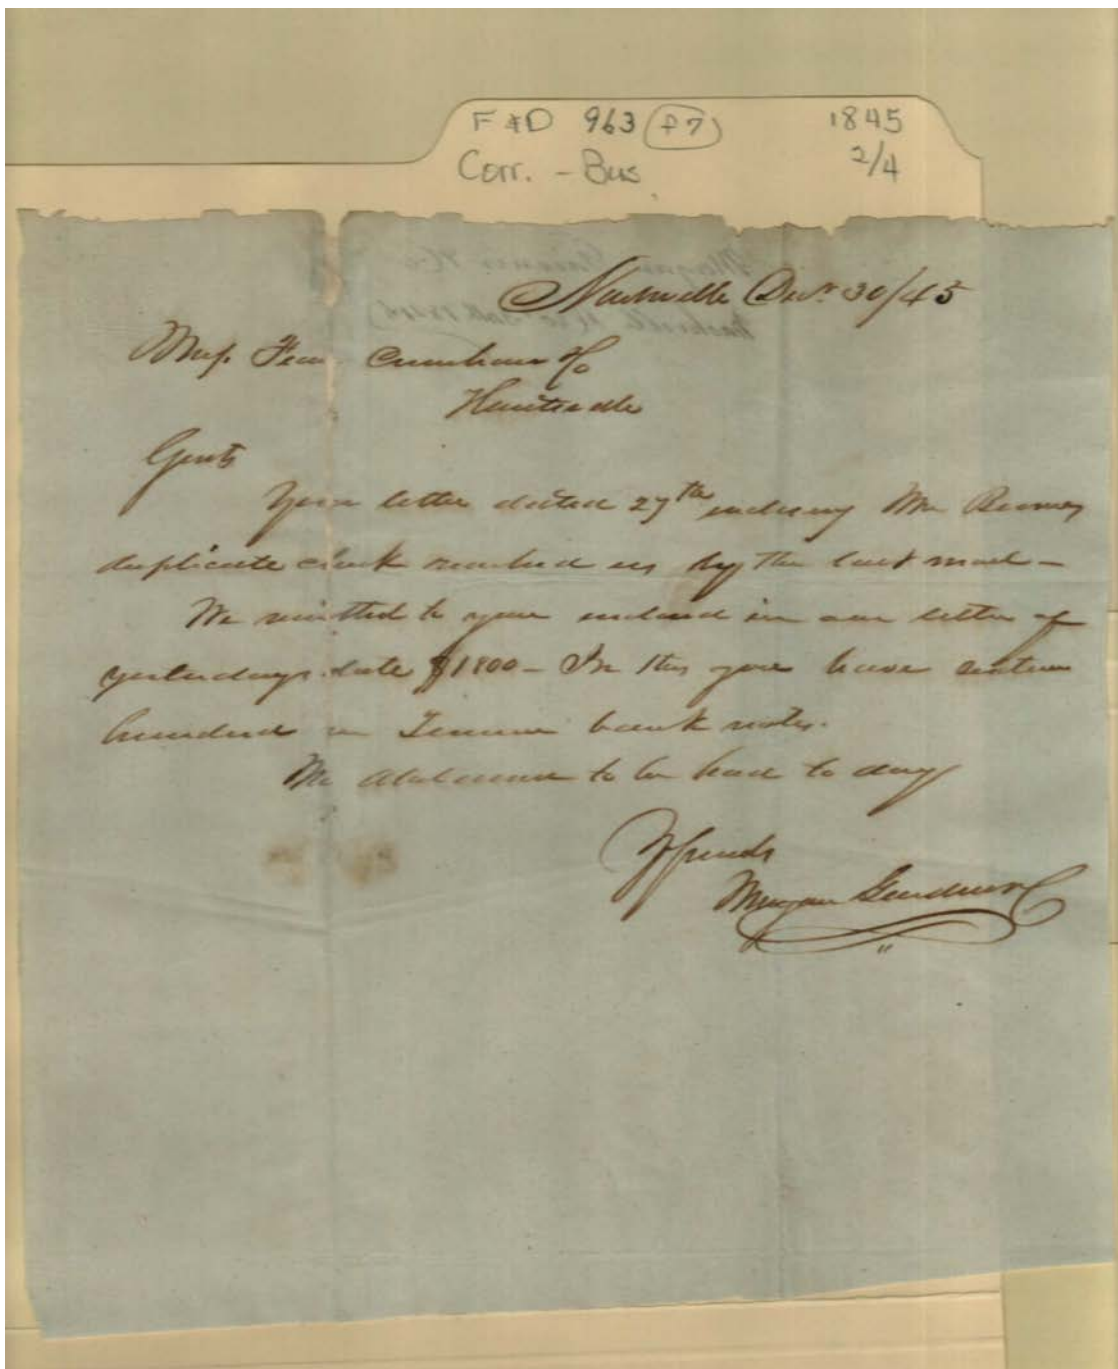 F & D 963 (f7) 1845
Corr. - Bus 2/4
Nashville Decr 30/45
Mess. Fearn Crenshaw & Co
Huntsville
Gents
Your letter dated 27th enclosing Mr
duplicate check reached us by the last mail -
We remitted to you enclosed in our letter of
yesterdays date $1800 - In this you have sixteen
hundred in Tennessee bank notes.
No Alabama to be had to day
Yr friends
Morgan